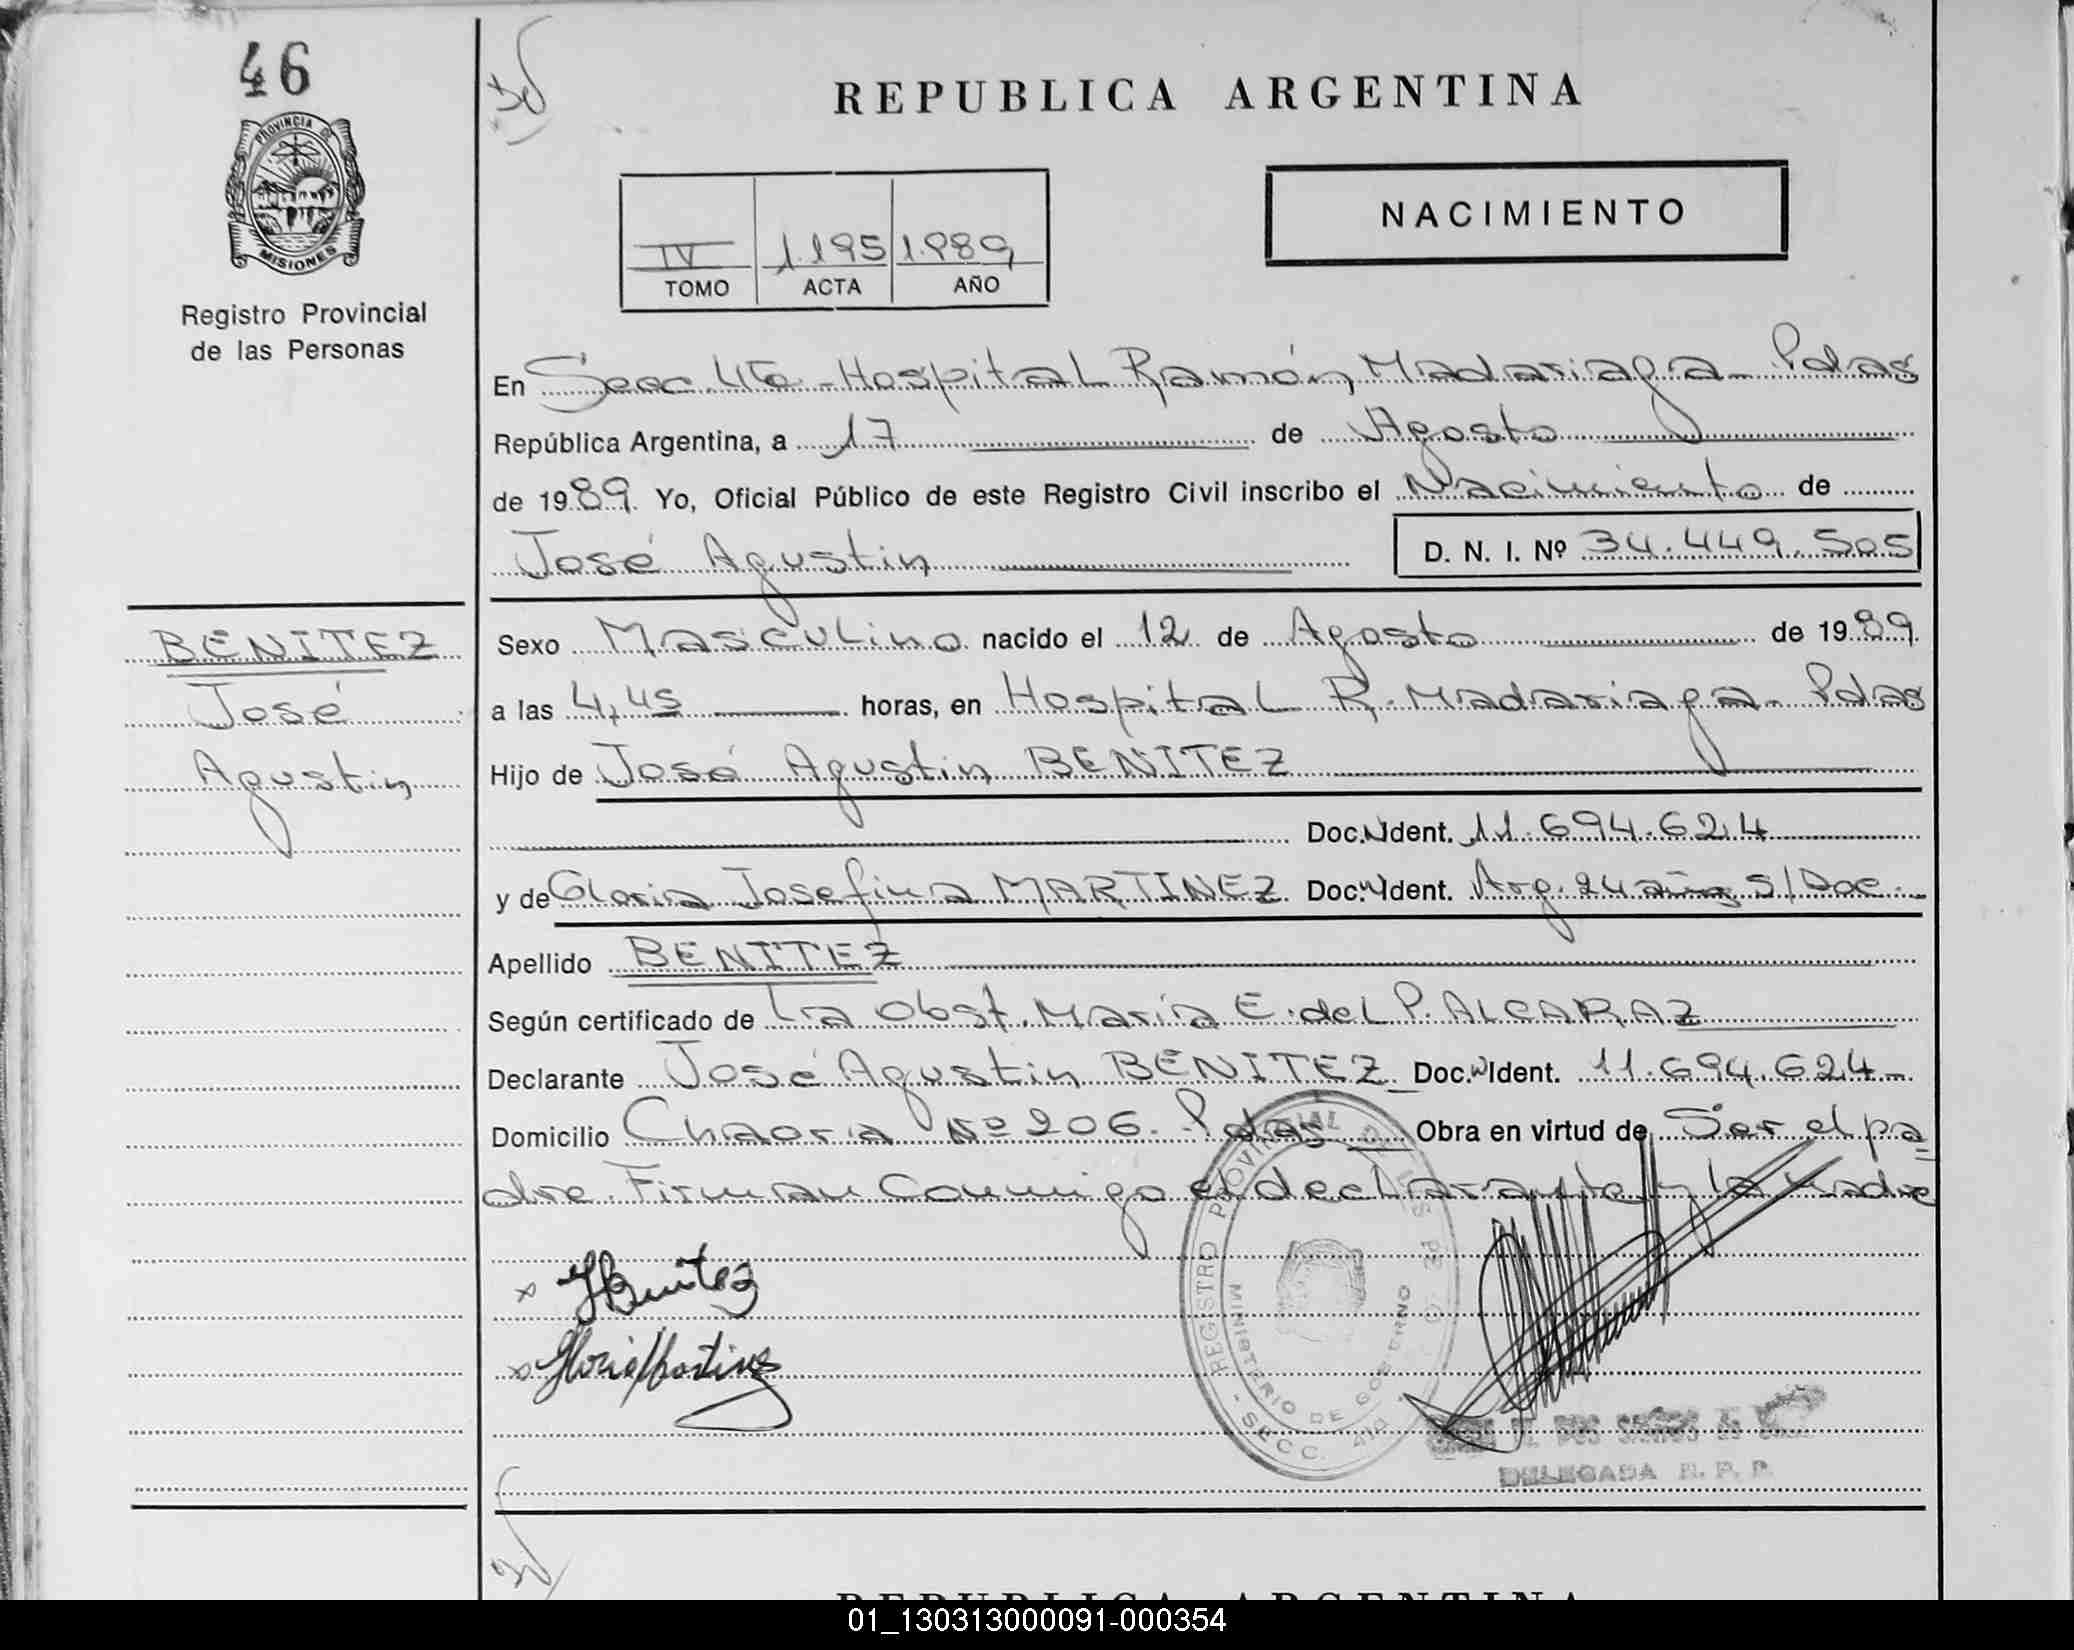 46
PROVINCIA DE
MISIONES
Registro Provincial
de las Personas
REPUBLICA ARGENTINA
NACIMIENTO
IV 1.195 1.989
TOMO ACTA AÑO
En Secc. 4ta - Hospital Ramón Madariaga - Pdas
República Argentina, a 17 de Agosto
de 1989. Yo, Oficial Público de este Registro Civil inscribo el Nacimiento de
José Agustin D. N. I. Nº 34.449.505
BENITEZ
José
Agustin
Sexo Masculino nacido el 12 de Agosto de 1989.
a las 4,45 horas, en Hospital R. Madariaga - Pdas
Hijo de José Agustin BENITEZ
Doc. Ident. 11.694.624
y de Gloria Josefina MARTINEZ Doc. Ident. Arg. 24 años S/Doc.-
Apellido BENITEZ
Según certificado de La Obst. María E. del P. ALCARAZ
Declarante José Agustin BENITEZ Doc. Ident. 11.694.624-
Domicilio Nº 206. Pdas Obra en virtud de Ser el pa
dre. Firman Conmigo el declarante y la Madre
x JBenitez
x Gloria Martinez
REGISTRO PROVINCIAL DE LAS
MINISTERIO DE GOBIERNO
- SECC. 4ta -
DOS SANTOS
DELEGADA R. P. P.
REPUBLICA ARGENTINA
01_130313000091-000354